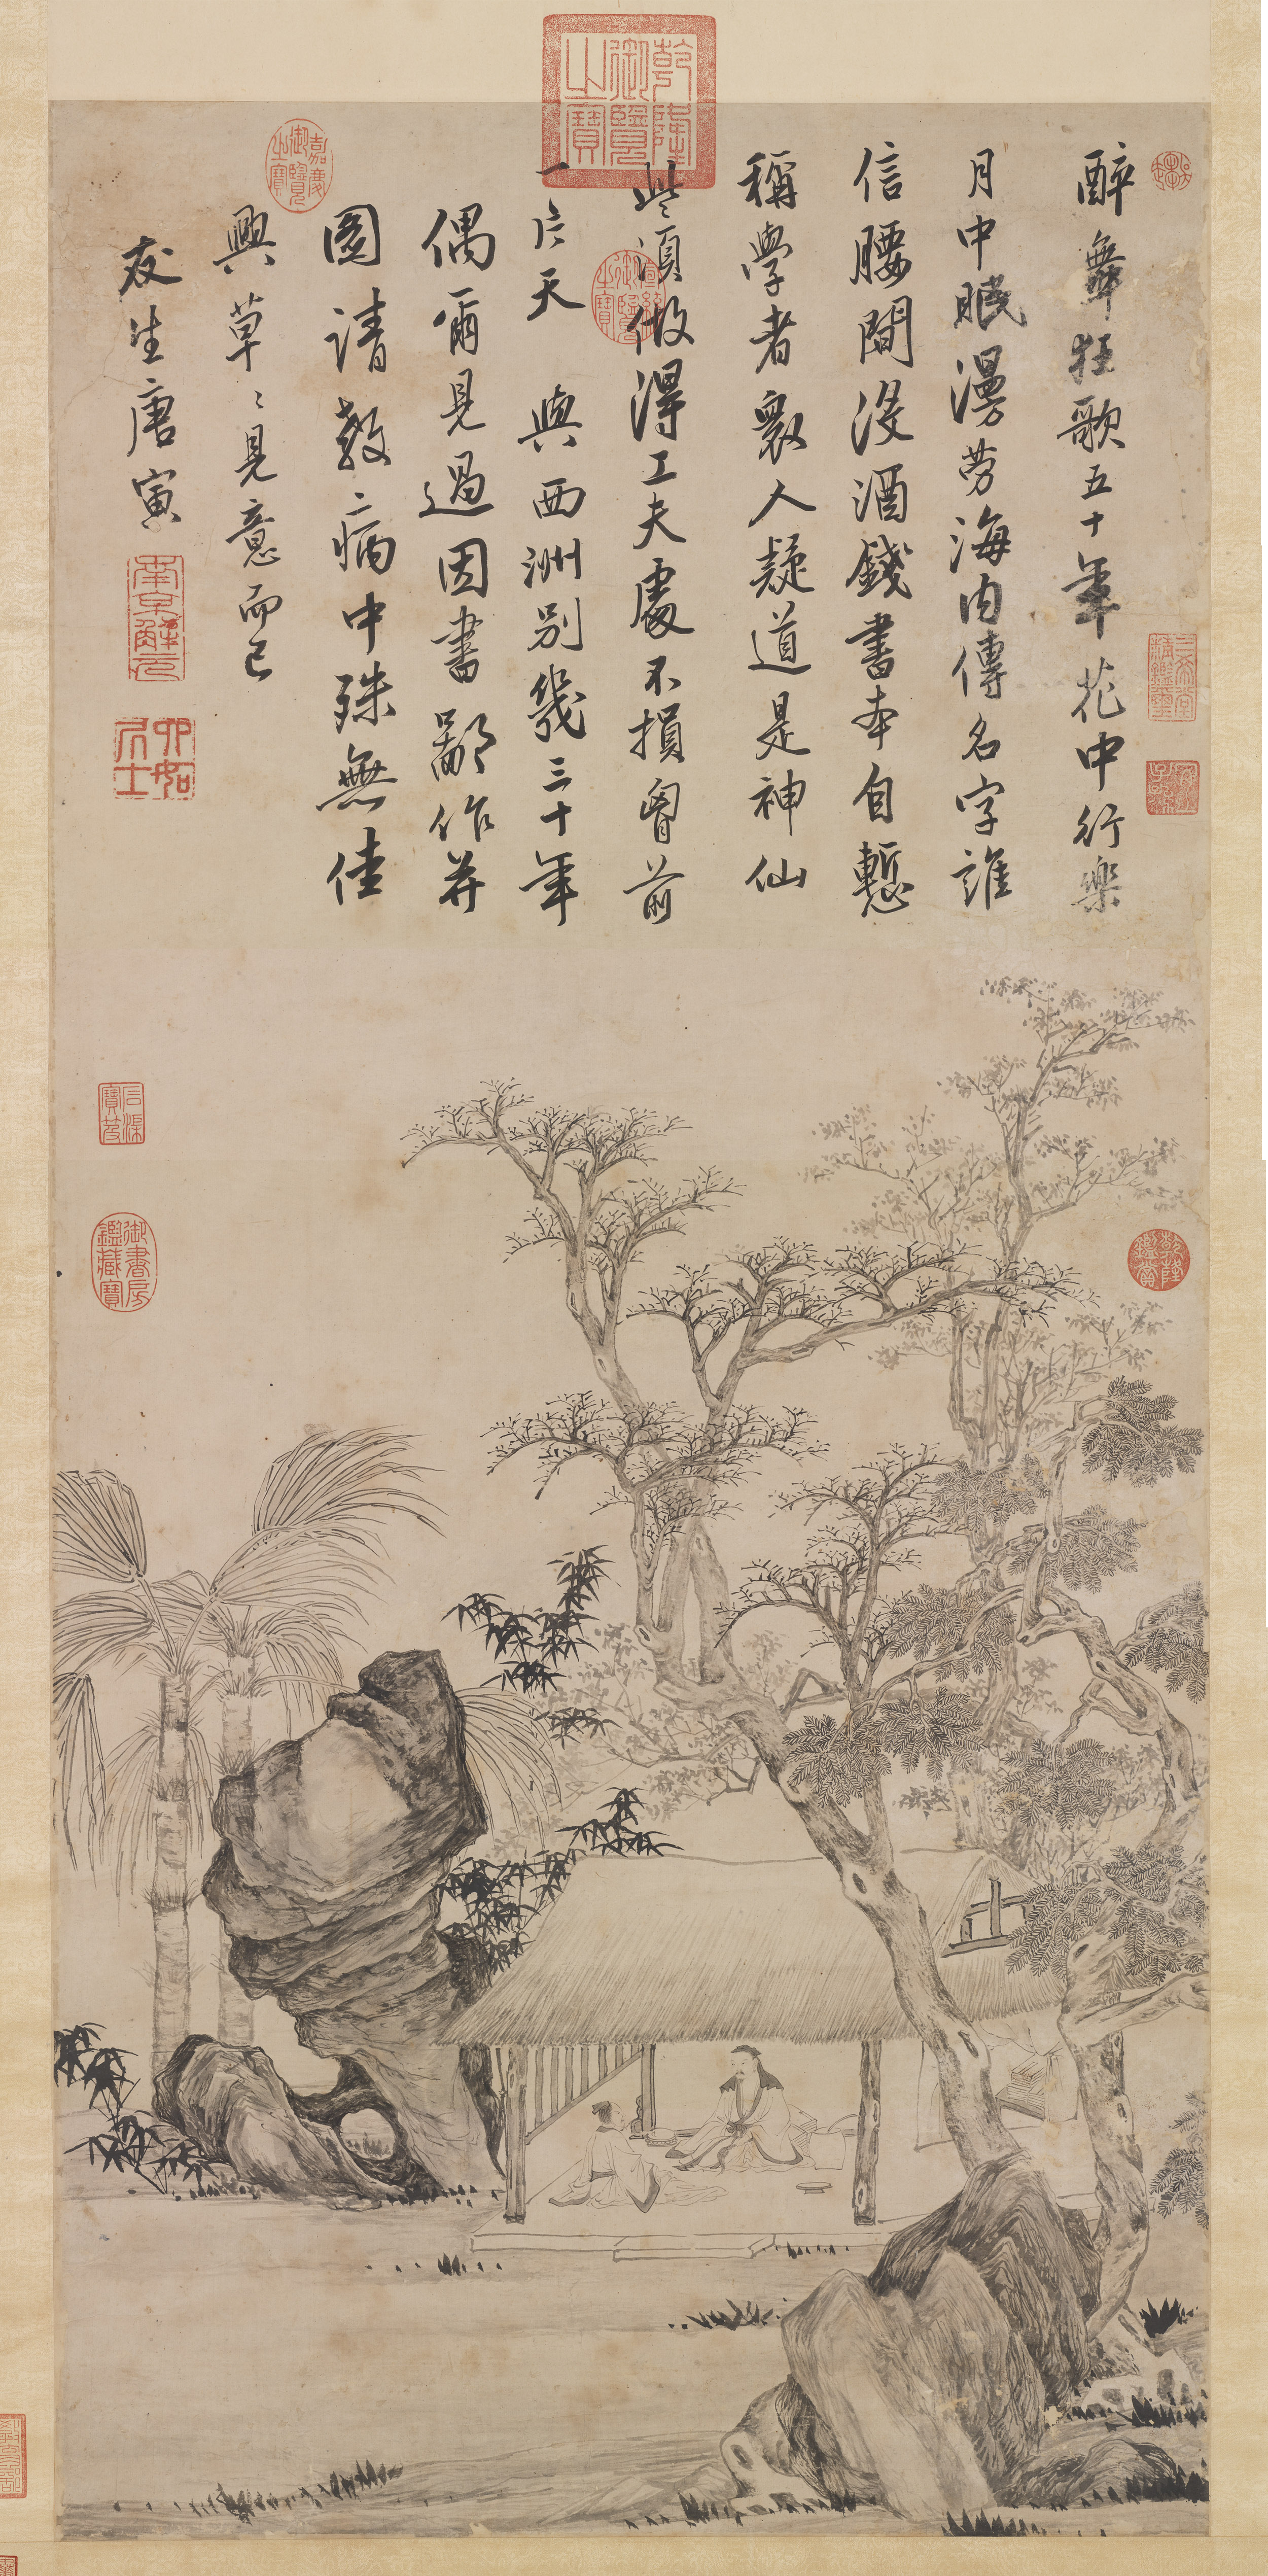 乾隆御覽之寶
醉舞狂歌五十年花中行樂
月中眠漫勞海內傳名字誰
信腰間没酒錢書本自慙
稱學者衆人疑道是神仙
些須做得工夫處不損胷前
一片天 與西洲別幾三十年
偶爾見過因書鄙作并
圖請教病中殊無佳
興草〻見意而已
友生唐寅
南京解元
六如居士
嘉慶御覽之寶
宣統御覽之寶
三希堂精鑑璽
宜子孫
石渠寶笈
御書房鑑藏寶
乾隆鑑賞